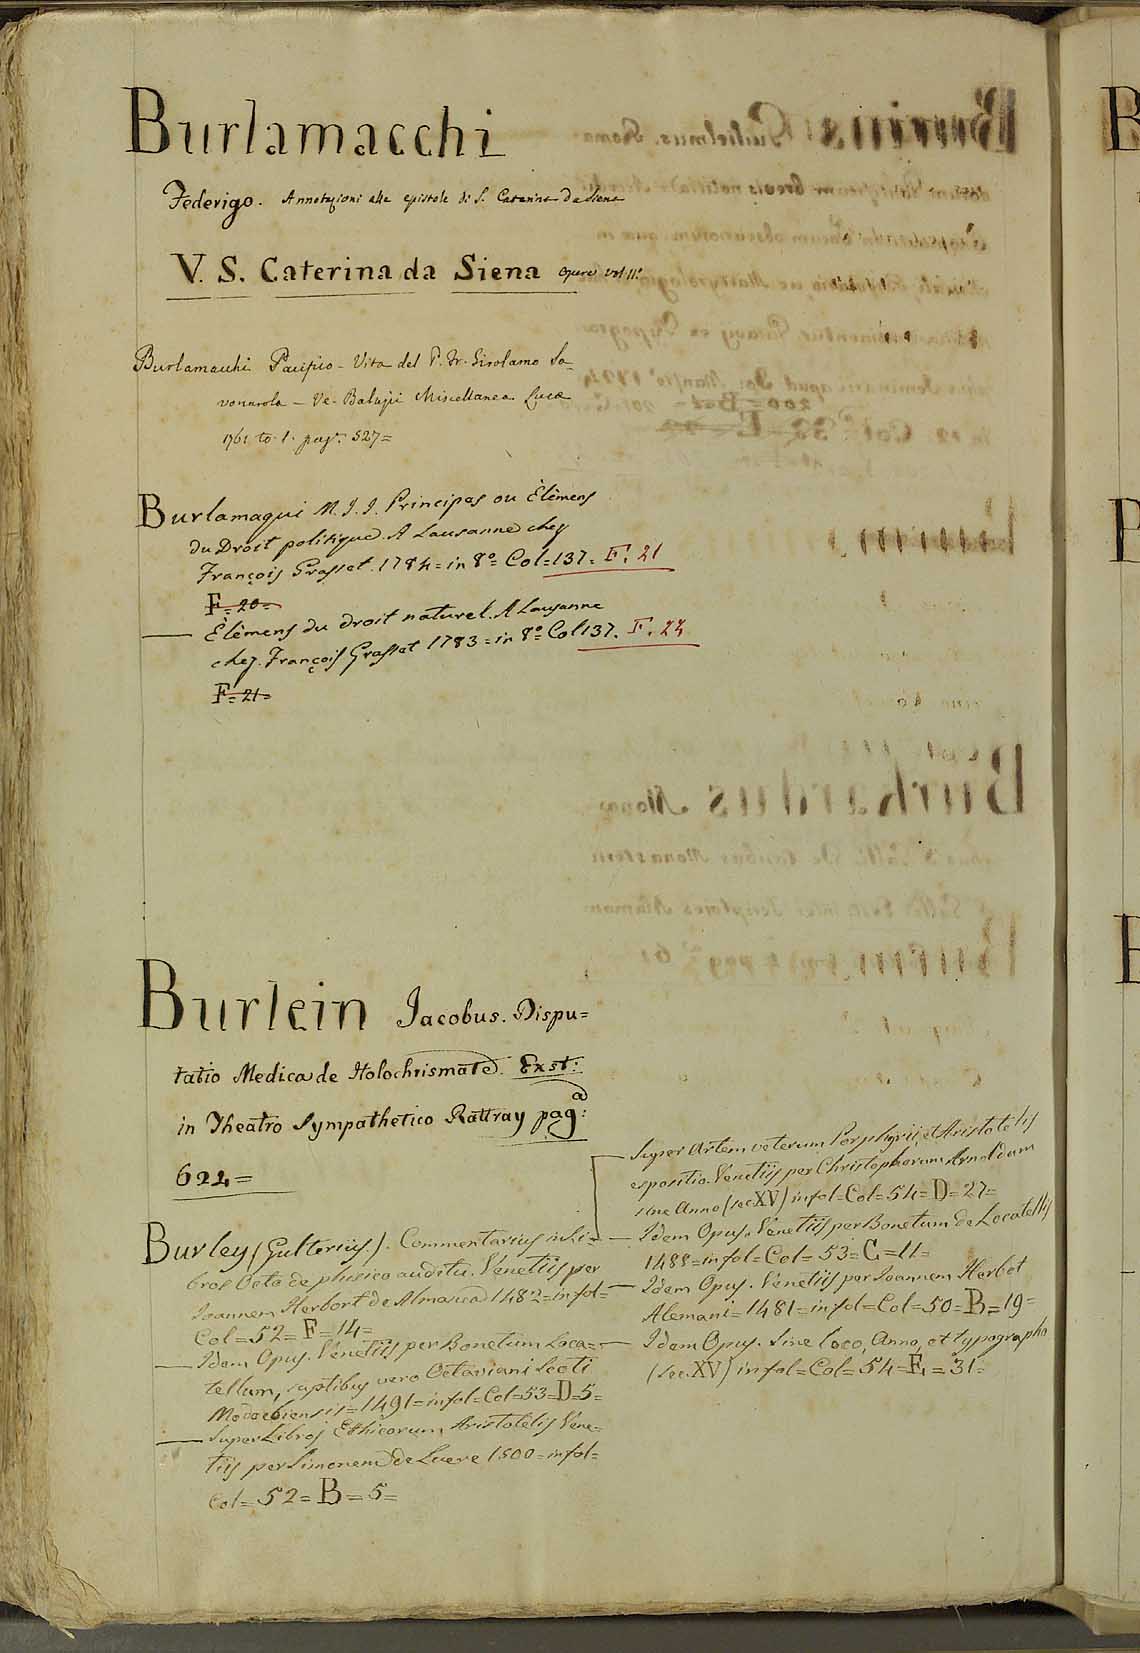 Burlamacchi
Federigo. Annotazioni alle epistole di S. Caterina da Siena
V. S. Caterina da Siena Opere vol II.
Burlamacchi Pacifico - Vita del P. Fr. Girolamo Sa-
vonarola - Ve. Baluzii Miscellanea. Lucæ
1761 to. 1. pag. 527=
Burlamaqui M. J. J. Principes ou Èlèmens
du Droit politique. A Lausanne chez
François Grasset. 1784= in 8º= Col=137= F. 21
F=20=
— Èlèmens du droit naturel. A Lausanne
chez François Grasset 1783= in 8º= Col 137. F. 22
F=21=
Burlein Jacobus. Dispu=
tatio Medica de Holochrismate. Exst:
in Theatro Sympathetico Rattray pagª:
622=
Burley (Gulterius). Commentarius in Li=
bros Octo de phisico auditu. Venetiis per
Joannem Herbort de Almania 1482= in fol=
Col=52= F=14=
— Idem Opus. Venetiis per Bonetum Loca=
tellum, suptibus vero Octaviani Scoti
Modoetiensis= 1491= in fol= Col=53= D=5=
— Super Libros Ethicorum Aristotelis Vene=
tiis per Simonem de Luere 1500= in fol=
Col= 52= B= 5=
Super Artem veterum Porphyrii, et Aristotelis
espositio. Venetiis per Christophorum Arnoldum
sine Anno (sec XV) in fol= Col= 54= D= 27=
— Idem Opus. Venetiis per Bonetum de Locatellis
1488= in fol= Col= 53= C= 11=
— Idem Opus. Venetiis per Joannem Herbot
Alemani= 1481= in fol= Col= 50= B= 19=
— Idem Opus. Sine loco, Anno, et typographo
(sec. XV) in fol= Col= 54= E= 31=